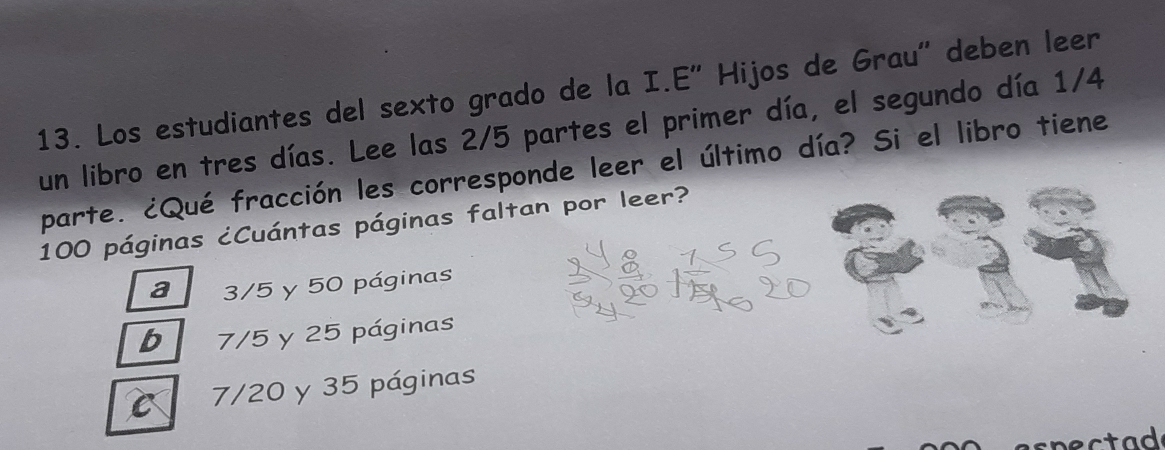 13. Los estudiantes del sexto grado de la I.E" Hijos de Grau" deben leer
un libro en tres días. Lee las 2/5 partes el primer día, el segundo día 1/4
parte. ¿Qué fracción les corresponde leer el último día? Si el libro tiene
100 páginas ¿Cuántas páginas faltan por leer?
a 3/5 y 50 páginas
b 7/5 y 25 páginas
c 7/20 y 35 páginas
4 8 1 5 5
20 20